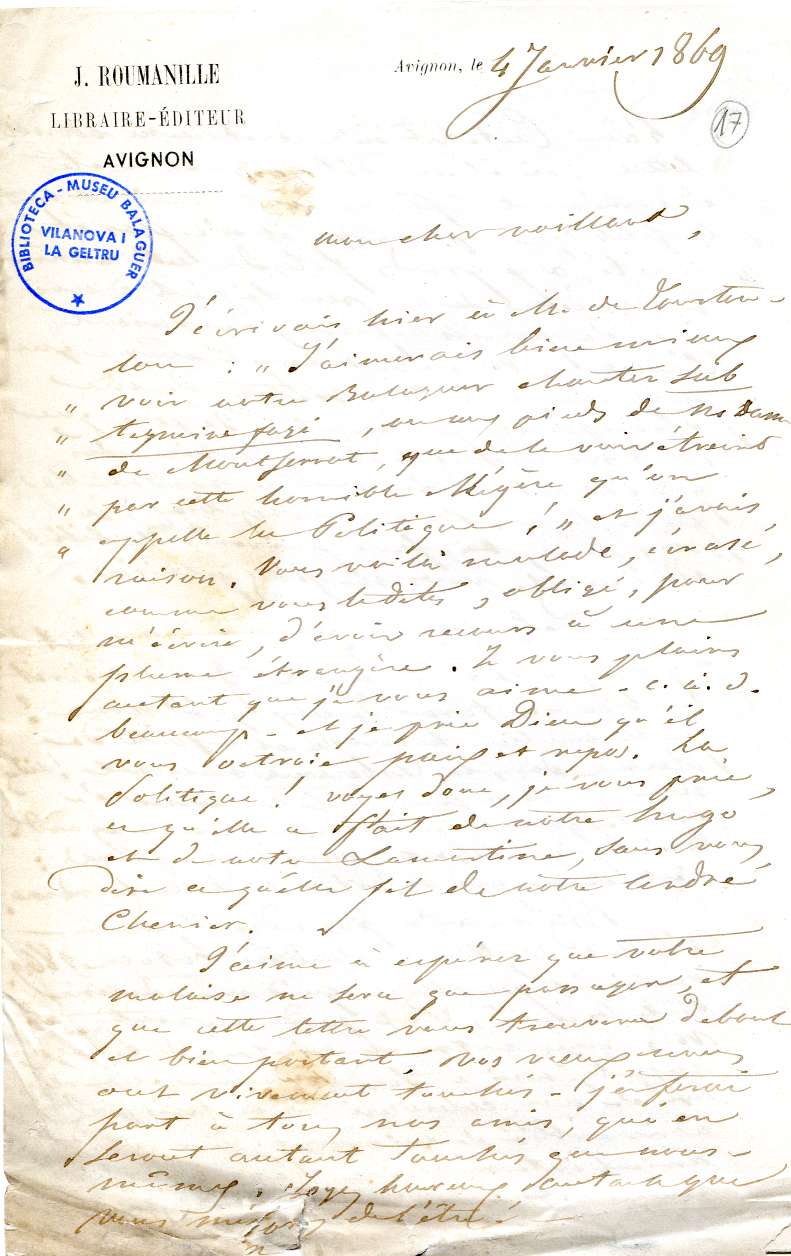 J. ROUMANILLE
LIBRAIRE-ÉDITEUR
AVIGNON
Avignon, le 4 Janvier 1869
17
BIBLIOTECA-MUSEU BALAGUER
VILANOVA I
LA GELTRU
mon cher vaillant,
J'écrivais hier à M. de Tourtou-
lon : " J'aimerais bien mieux
" voir notre Balaguer chanter sub
" tegmine fagi, ou aux pieds de No Dame
" de Montserrat, que de le voir étreint
" par cette horrible Mégère qu'on
" appelle la Politique ! " et j'avais
raison. Vous voilà malade, écrasé,
comme vous le dites, obligé, pour
m'écrire, d'avoir recours à une
plume étrangère. Je vous plains
autant que je vous aime - c. à. d.
beaucoup - et je prie Dieu qu'il
vous octroie paix et repos. La
Politique ! voyez donc, je vous prie,
ce qu'elle a fait de notre Hugo
et de notre Lamartine, sans vous
dire ce qu'elle fit de notre André
Chenier.
J'aime à espérer que votre
malaise ne sera que passager, et
que cette lettre vous trouvera debout
et bien portant. Vos vœux nous
ont vivement touchés - j'en ferai
part à tous nos amis, qui en
seront autant touchés que nous-
mêmes. Soyez heureux autant que
vous méritez de l'être.